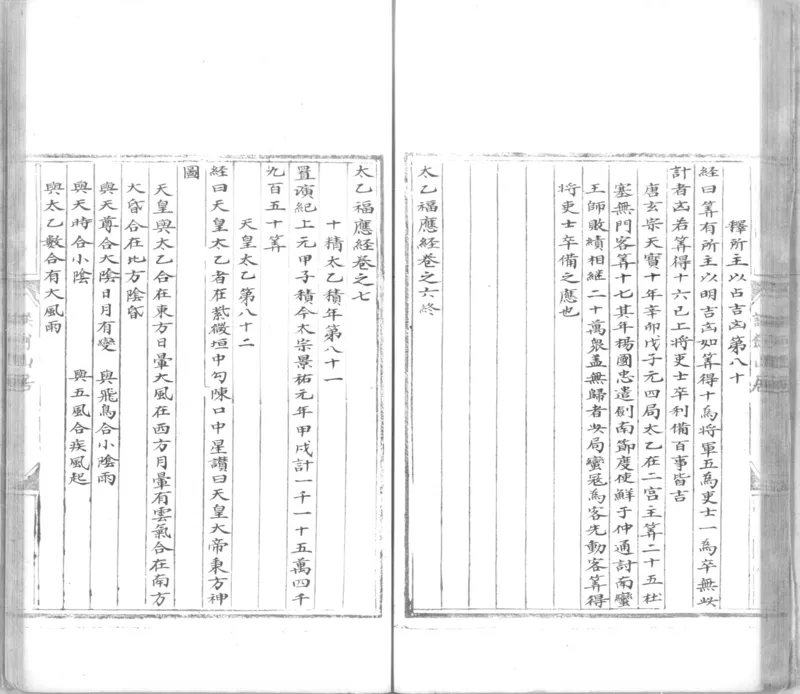 釋所主以占吉凶第八十
經曰筭有所主以明吉凶如筭得十為將軍五為吏士一為卒無此
計者凶若筭得十六已上將吏士卒利備百事皆吉
唐玄宗天寶十年辛卯戊子元四局太乙在二宫主筭二十五杜
塞無門客筭十七其年楊國忠遣劍南節度使鮮于仲通討南蠻
王師敗績相繼二十萬衆盖無歸者此局蠻冦為客先動客筭得
將吏士卒備之應也
太乙福應經卷之六終
太乙福應經卷之七
十精太乙積年第八十一
置演紀上元甲子積今太宗景祐元年甲戌計一千一十五萬四千
九百五十筭
天皇太乙第八十二
經曰天皇太乙者在紫微垣中勾陳口中星讃曰天皇大帝秉方神
圖
天皇與太乙合在東方日暈大風在西方月暈有雲氣合在南方
大合在比方陰
與天尊合大陰日月有變 與飛鳥合小陰雨
與天時合小陰 與五風合疾風起
與太乙數合有大風雨